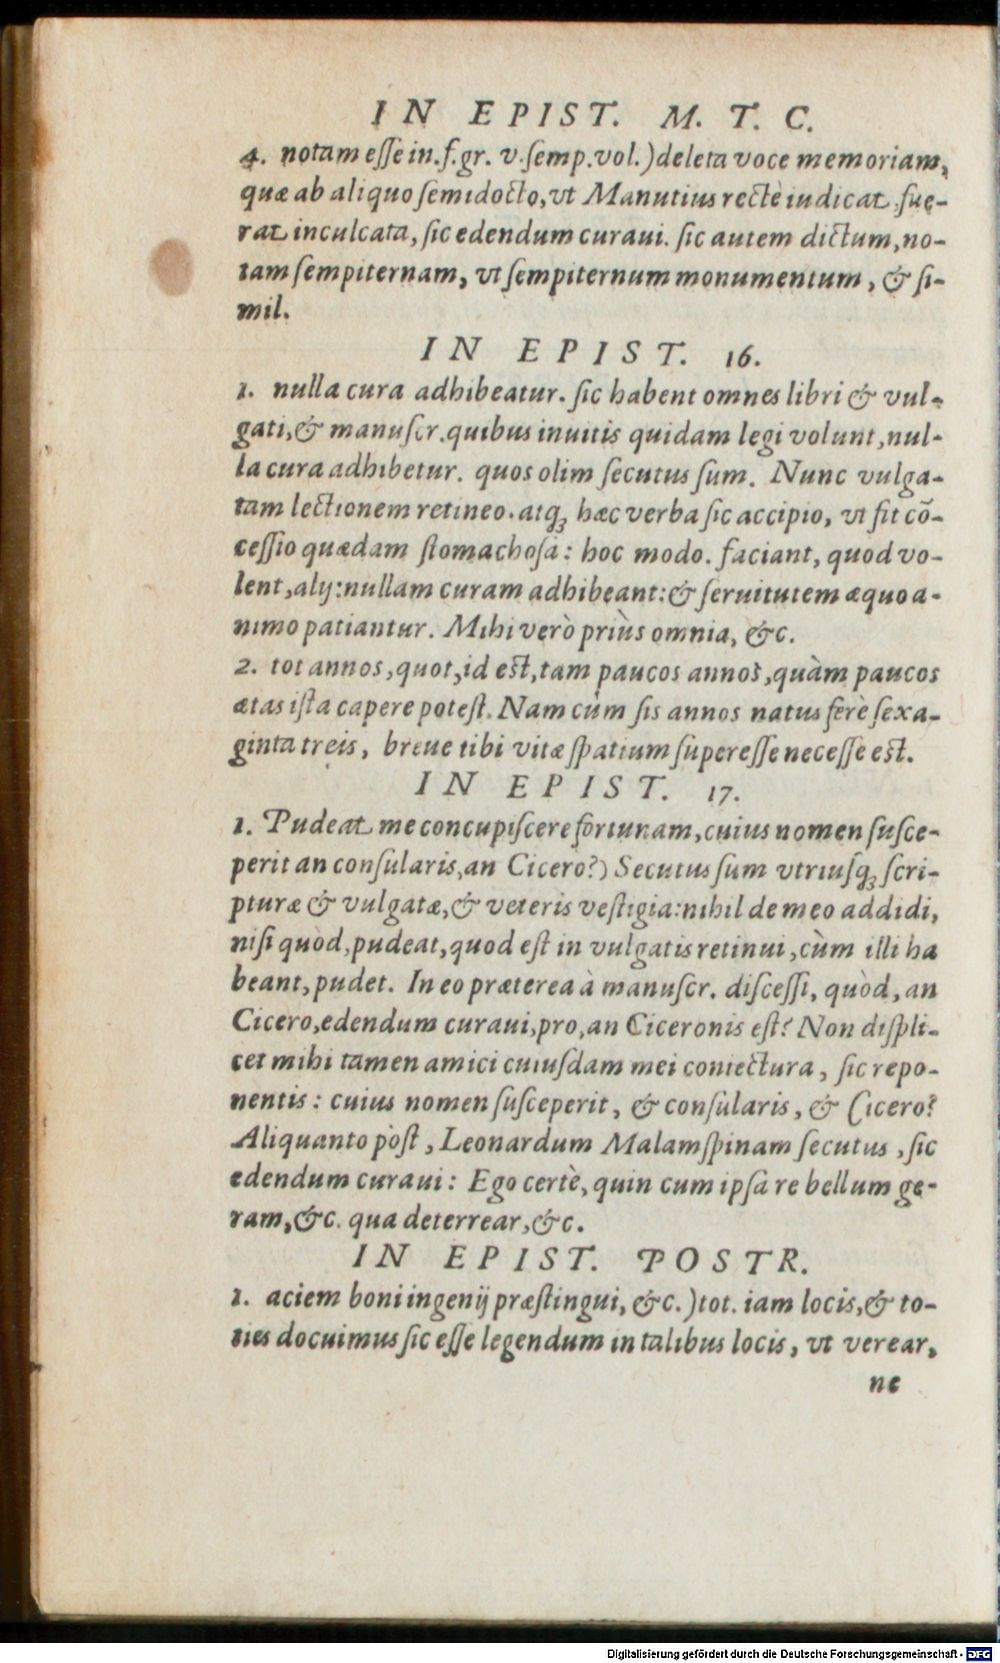 IN EPIST. M. T. C.
4. notam esse in. f. gr. v. semp. vol.) deleta voce memoriam,
quæ ab aliquo semidocto, vt Manutius rectè iudicat, fue-
rat inculcata, sic edendum curaui. sic autem dictum, no-
tam sempiternam, vt sempiternum monumentum, & si-
mil.
IN EPIST. 16.
1. nulla cura adhibeatur. sic habent omnes libri & vul-
gati, & manuscr. quibus inuitis quidam legi volunt, nul-
la cura adhibetur. quos olim secutus sum. Nunc vulga-
tam lectionem retineo. atq; hæc verba sic accipio, vt sit cō-
cessio quædam stomachosa: hoc modo. faciant, quod vo-
lent, alij: nullam curam adhibeant: & seruitutem æquo a-
nimo patiantur. Mihi verò priùs omnia, &c.
2. tot annos, quot, id est, tam paucos annos, quàm paucos
ætas ista capere potest. Nam cùm sis annos natus ferè sexa-
ginta treis, breue tibi vitæ spatium superesse necesse est.
IN EPIST. 17.
1. Pudeat me concupiscere fortunam, cuius nomen susce-
perit an consularis, an Cicero?) Secutus sum vtriusq; scri-
pturæ & vulgatæ, & veteris vestigia: nihil de meo addidi,
nisi quòd, pudeat, quod est in vulgatis retinui, cùm illi ha
beant, pudet. In eo præterea à manuscr. discessi, quòd, an
Cicero, edendum curaui, pro, an Ciceronis est? Non displi-
cet mihi tamen amici cuiusdam mei coniectura, sic repo-
nentis: cuius nomen susceperit, & consularis, & Cicero?
Aliquanto pòst, Leonardum Malamspinam secutus, sic
edendum curaui: Ego certè, quin cum ipsa re bellum ge-
ram, &c. qua deterrear, &c.
IN EPIST. POSTR.
1. aciem boni ingenij præstingui, &c.) tot. iam locis, & to-
ties docuimus sic esse legendum in talibus locis, vt verear,
ne
Digitalisierung gefördert durch die Deutsche Forschungsgemeinschaft - DFG